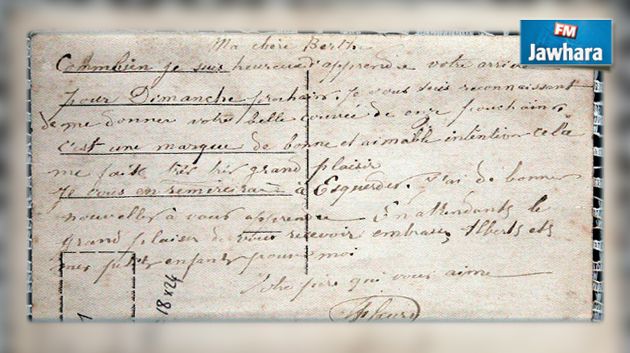 FM
Jawhara
Ma chère Berthe
Combien je suis heureux d'apprendre votre arrivée
pour Dimanche prochain. Je vous suis reconnaissant
de me donner votre belle couvée de onze
c'est une marque de bonne et aimable intention cela
me fait très très grand plaisir
Je vous en remercierai à Esquerdes. J'ai de bonnes
nouvelles à vous apprendre En attendants le
grand plaisir de vous recevoir embrassez Alberts ets
petits enfants pour moi
Votre père qui vous aime
18x24
1